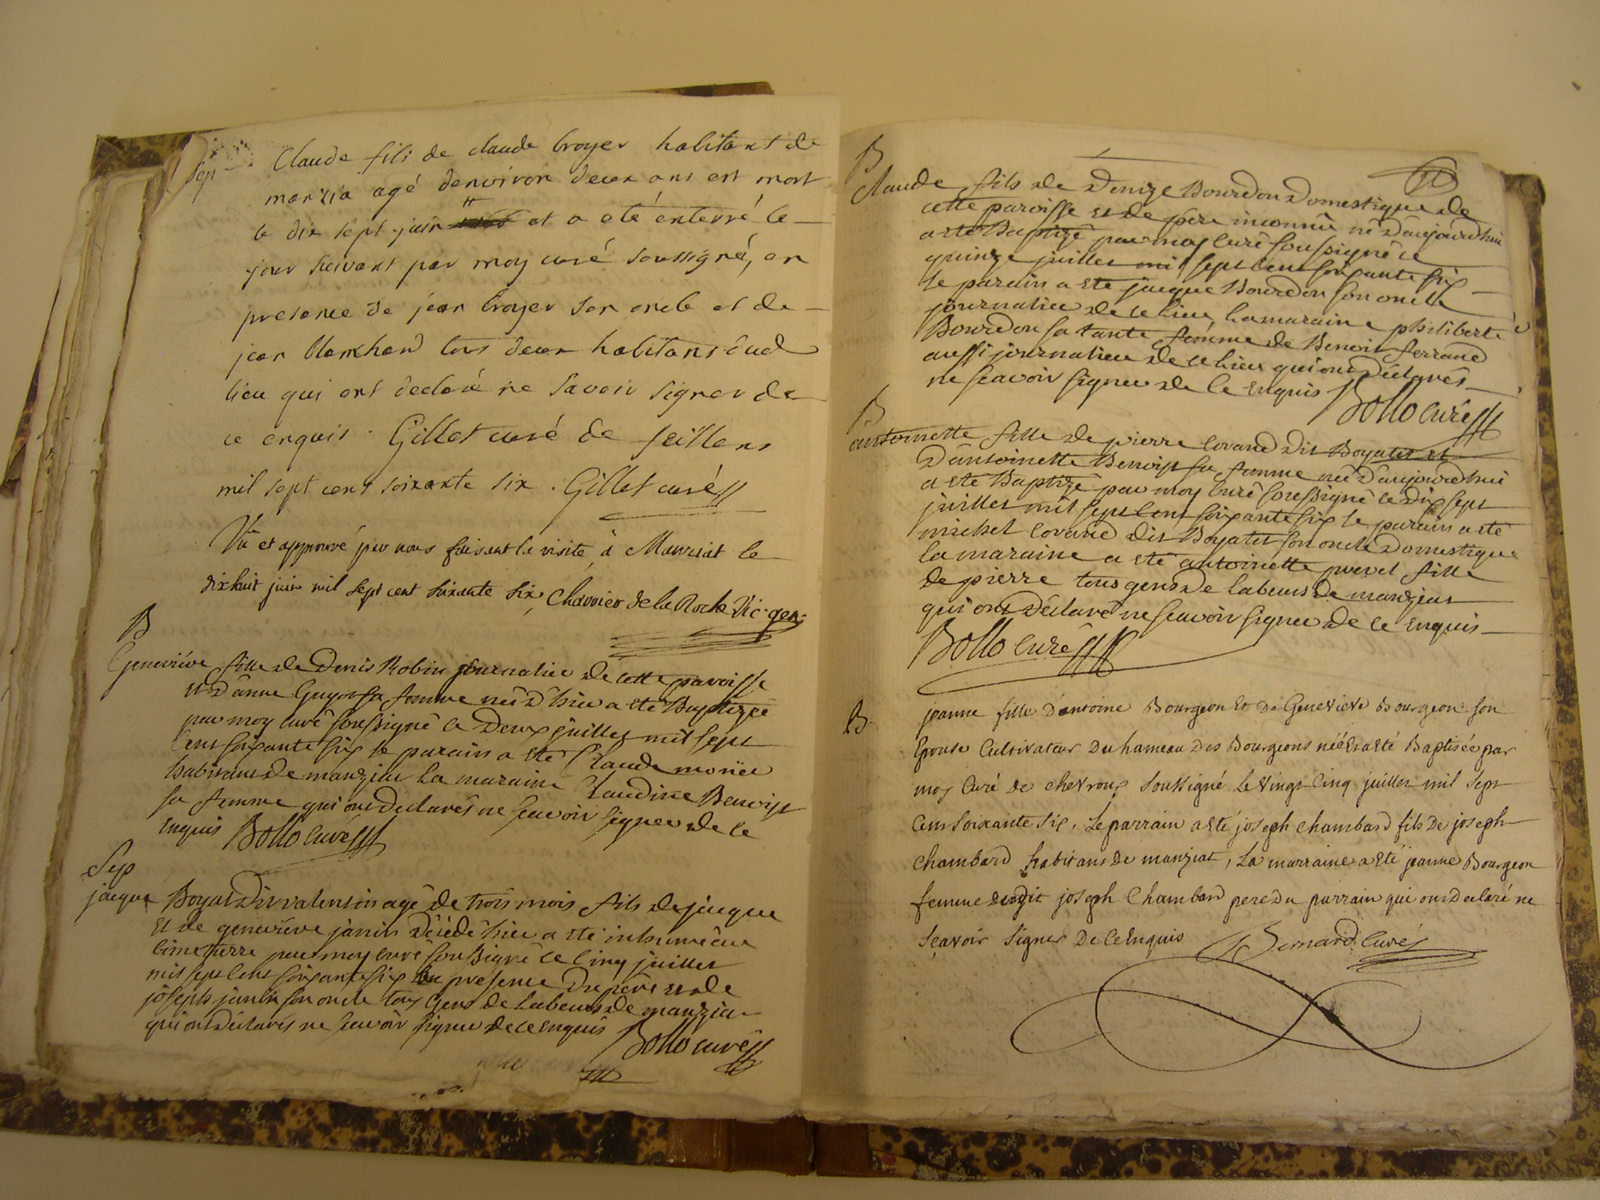 Sep
Claude fils de claude broyer habitant de
manzia agé denviron deux ans est mort
le dix sept juin et a eté enterré le
jour suivant par moy curé soussigné, en
presence de jean broyer son oncle et de
jean blanchard tous deux habitans dud
lieu qui ont declaré ne savoir signer de
ce enquis. Gillet curé de feillens
mil sept cent soixante six. Gillet curé
Vû et approuvé par nous faisant la visite à Manziat le
dixhuit juin mil sept cent soixante six, Chavrier de la Roche Vic. gen.
B
Geneviéve fille de Denis Robin journalier de cette paroisse
et d'anne Guyon sa femme née d'hier a eté Baptizée
par moy curé soussigné le Deux juillet mil sept
Cent soixante six le parain a eté Claude
habitans de manziat la maraine Claudine Benoist
sa femme qui ont declarés ne scavoir signer de ce
enquis Bollo curé
Sep
jacque Boyat dit valentin agé de trois mois fils de jacque
Et de geneviéve janin décédé hier a eté inhumé au
Cimetierre par moy curé soussigné le Cinq juillet
mil sept Cent soixante six En presence du pere et de
joseph janin son oncle tous gens de Labeur de manziat
qui ont déclarés ne scavoir signer de ce enquis
Bollo curé
B
Claude fils de Denize Bourdon Domestique de
cette paroisse et de pere inconnu né d'aujourdhui
a eté Baptizé par moy Curé soussigné le
quinze juillet mil sept Cent soixante six
le parain a eté jacque Bourdon son oncle
journalier de ce lieu la maraine philiberte
Bourdon sa tante femme de Benoit ferrand
aussi journalier de ce lieu qui ont déclarés
ne scavoir signer de ce enquis
Bollo curé
B
antoinette fille de pierre Dit Boyatet et
D'antoinette Benoist sa femme née d'aujourdhui
a eté Baptizé par moy Curé soussigné le dix sept
juillet mil sept Cent soixante six le parain a eté
michel dit Boyatet son oncle Domestique
la maraine a eté antoinette fille
de pierre tous gens de Labeur de manziat
qui ont déclaré ne scavoir signer de ce enquis
Bollo Curé
B
jeanne fille d'antoine Bourgeon et de Genevieve Bourgeon son
Epouse Cultivateur du hameau des Bourgeons née Baptisée par
moy Curé de Chevroux soussigné le vingt Cinq juillet mil sept
Cent soixante six, Le parrain a eté joseph Chambard fils de joseph
Chambard habitans de manziat, La marraine a eté jeanne Bourgeon
femme dudit joseph Chambard pere du parrain qui ont declaré ne
sçavoir signer De ce Enquis Bernard Curé